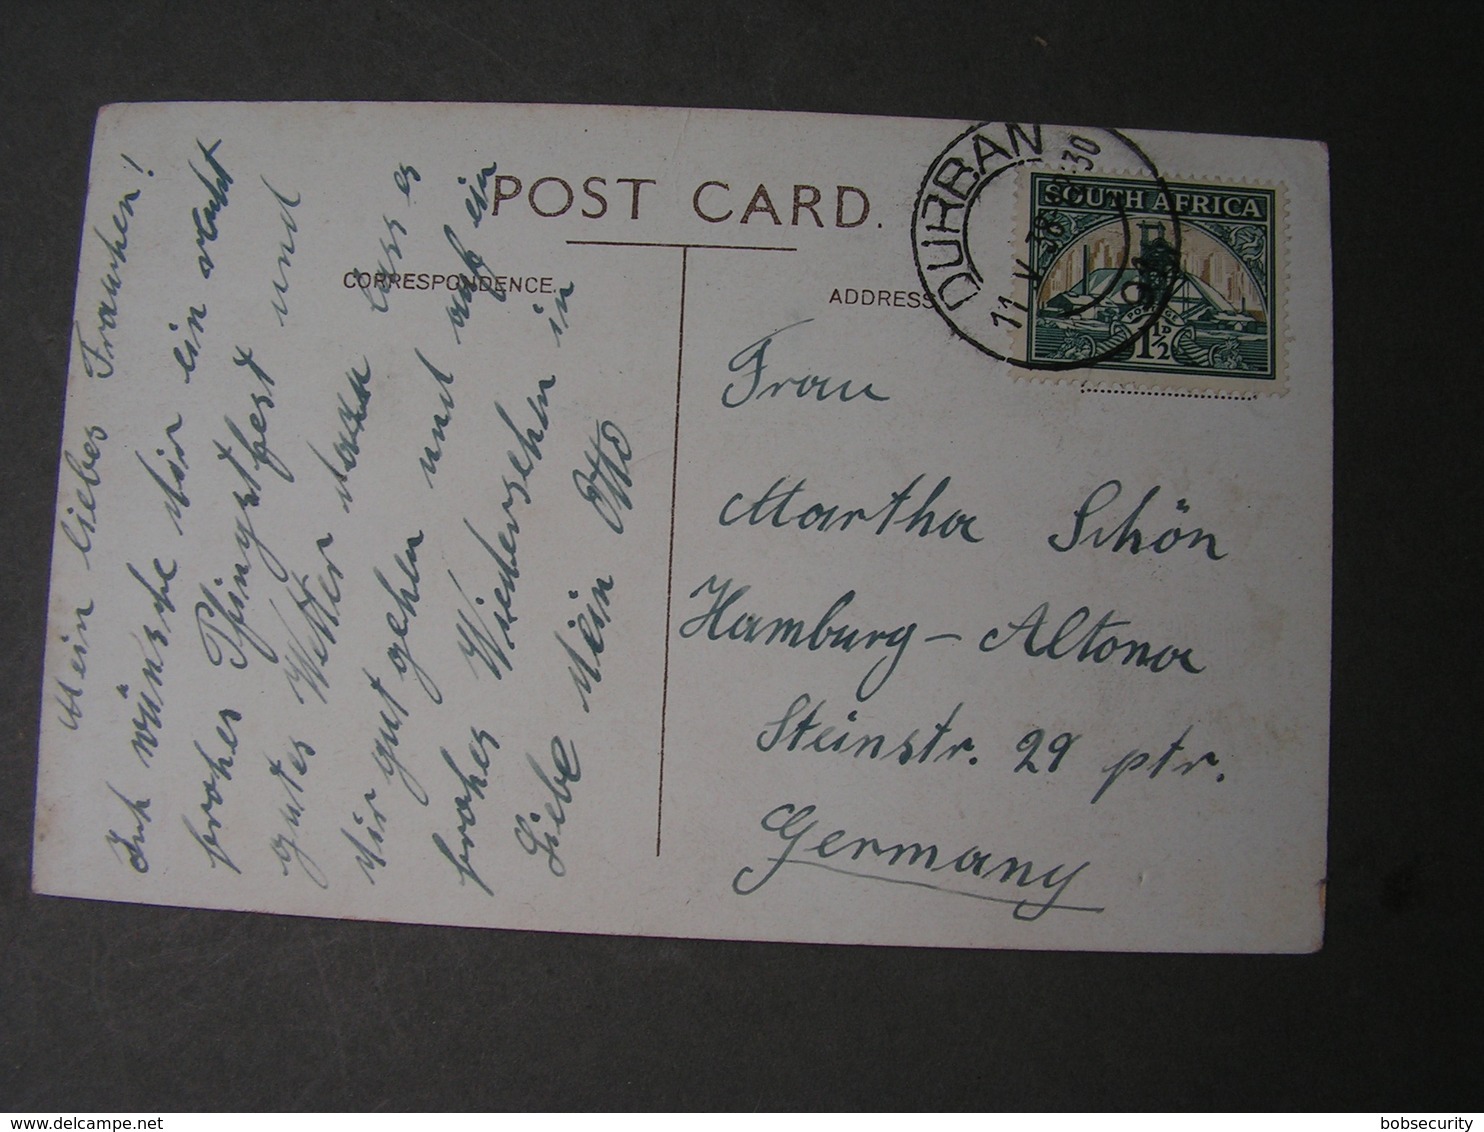 POST CARD.
CORRESPONDENCE.
ADDRESS
DURBAN
11 V 38
SOUTH AFRICA
POSTAGE
1½D
Mein liebes Frauchen!
Ich wünsche Dir ein recht
frohes Pfingstfest und
gutes Wetter dazu lass es
Dir gut gehen und auf ein
frohes Wiedersehen in
Liebe Dein Otto
Frau
Martha Schön
Hamburg - Altona
Steinstr. 29 ptr.
Germany
bobsecurity